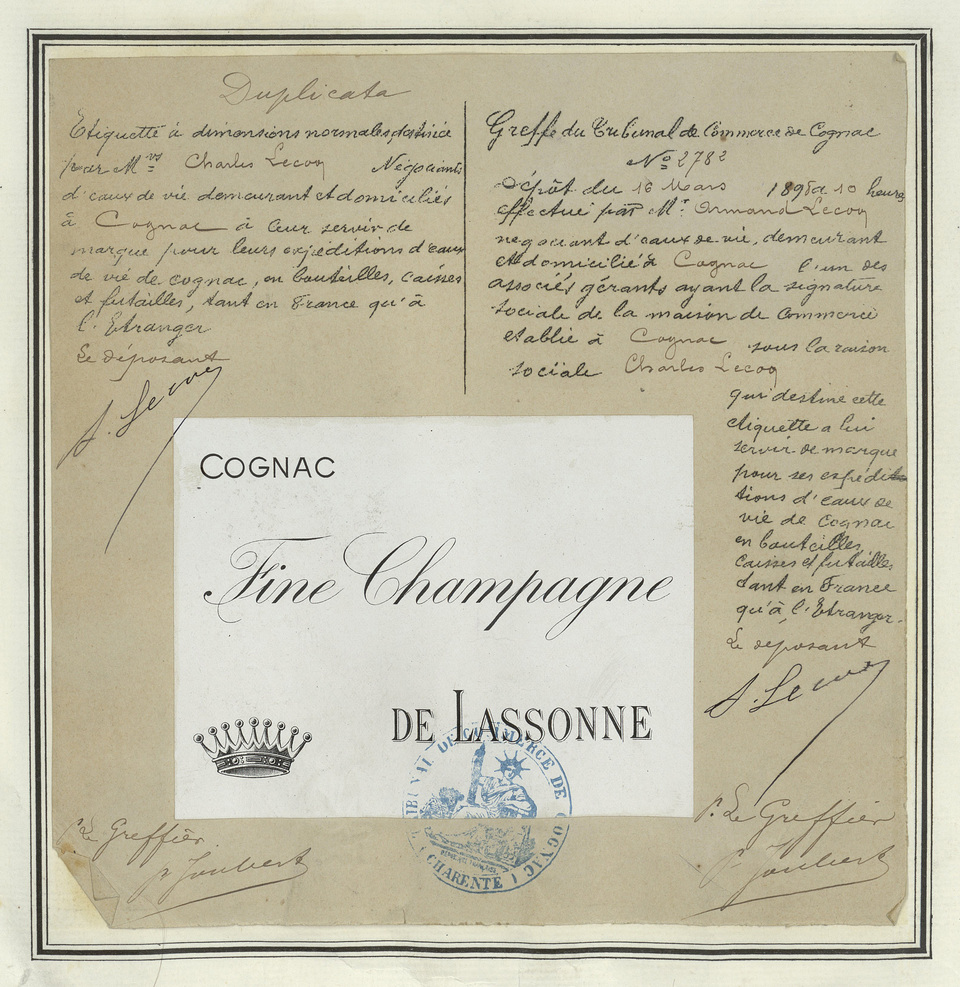 Duplicata
Etiquette à dimensions normales destinée
par Mrs Charles Lecoq Négociants
d'eaux de vie demeurant et domiciliés
à Cognac à leur servir de
marque pour leurs expéditions d'eaux
de vie de cognac, en bouteilles, caisses
et futailles, tant en France qu'à
l'Etranger
Le déposant
A. Lecoq
Greffe du Tribunal de Commerce de Cognac
No 2782
Dépôt du 16 Mars 1895 à 10 heures
effectué par Mr. Armand Lecoq
negociant d'eaux de vie, demeurant
et domicilié à Cognac l'un des
associés gérants ayant la signature
sociale de la maison de Commerce
etablie à Cognac sous la raison
sociale Charles Lecoq
qui destine cette
etiquette a lui
servir de marque
pour ses expédi
tions d'eaux de
vie de Cognac
en bouteilles,
caisses et futailles
tant en France
qu'à l'Etranger.
Le deposant
A. Lecoq
COGNAC
Fine Champagne
DE LASSONNE
TRIBUNAL DE COMMERCE DE COGNAC
(CHARENTE)
p. Le Greffier
P. Joubert
p. Le Greffier
P. Joubert